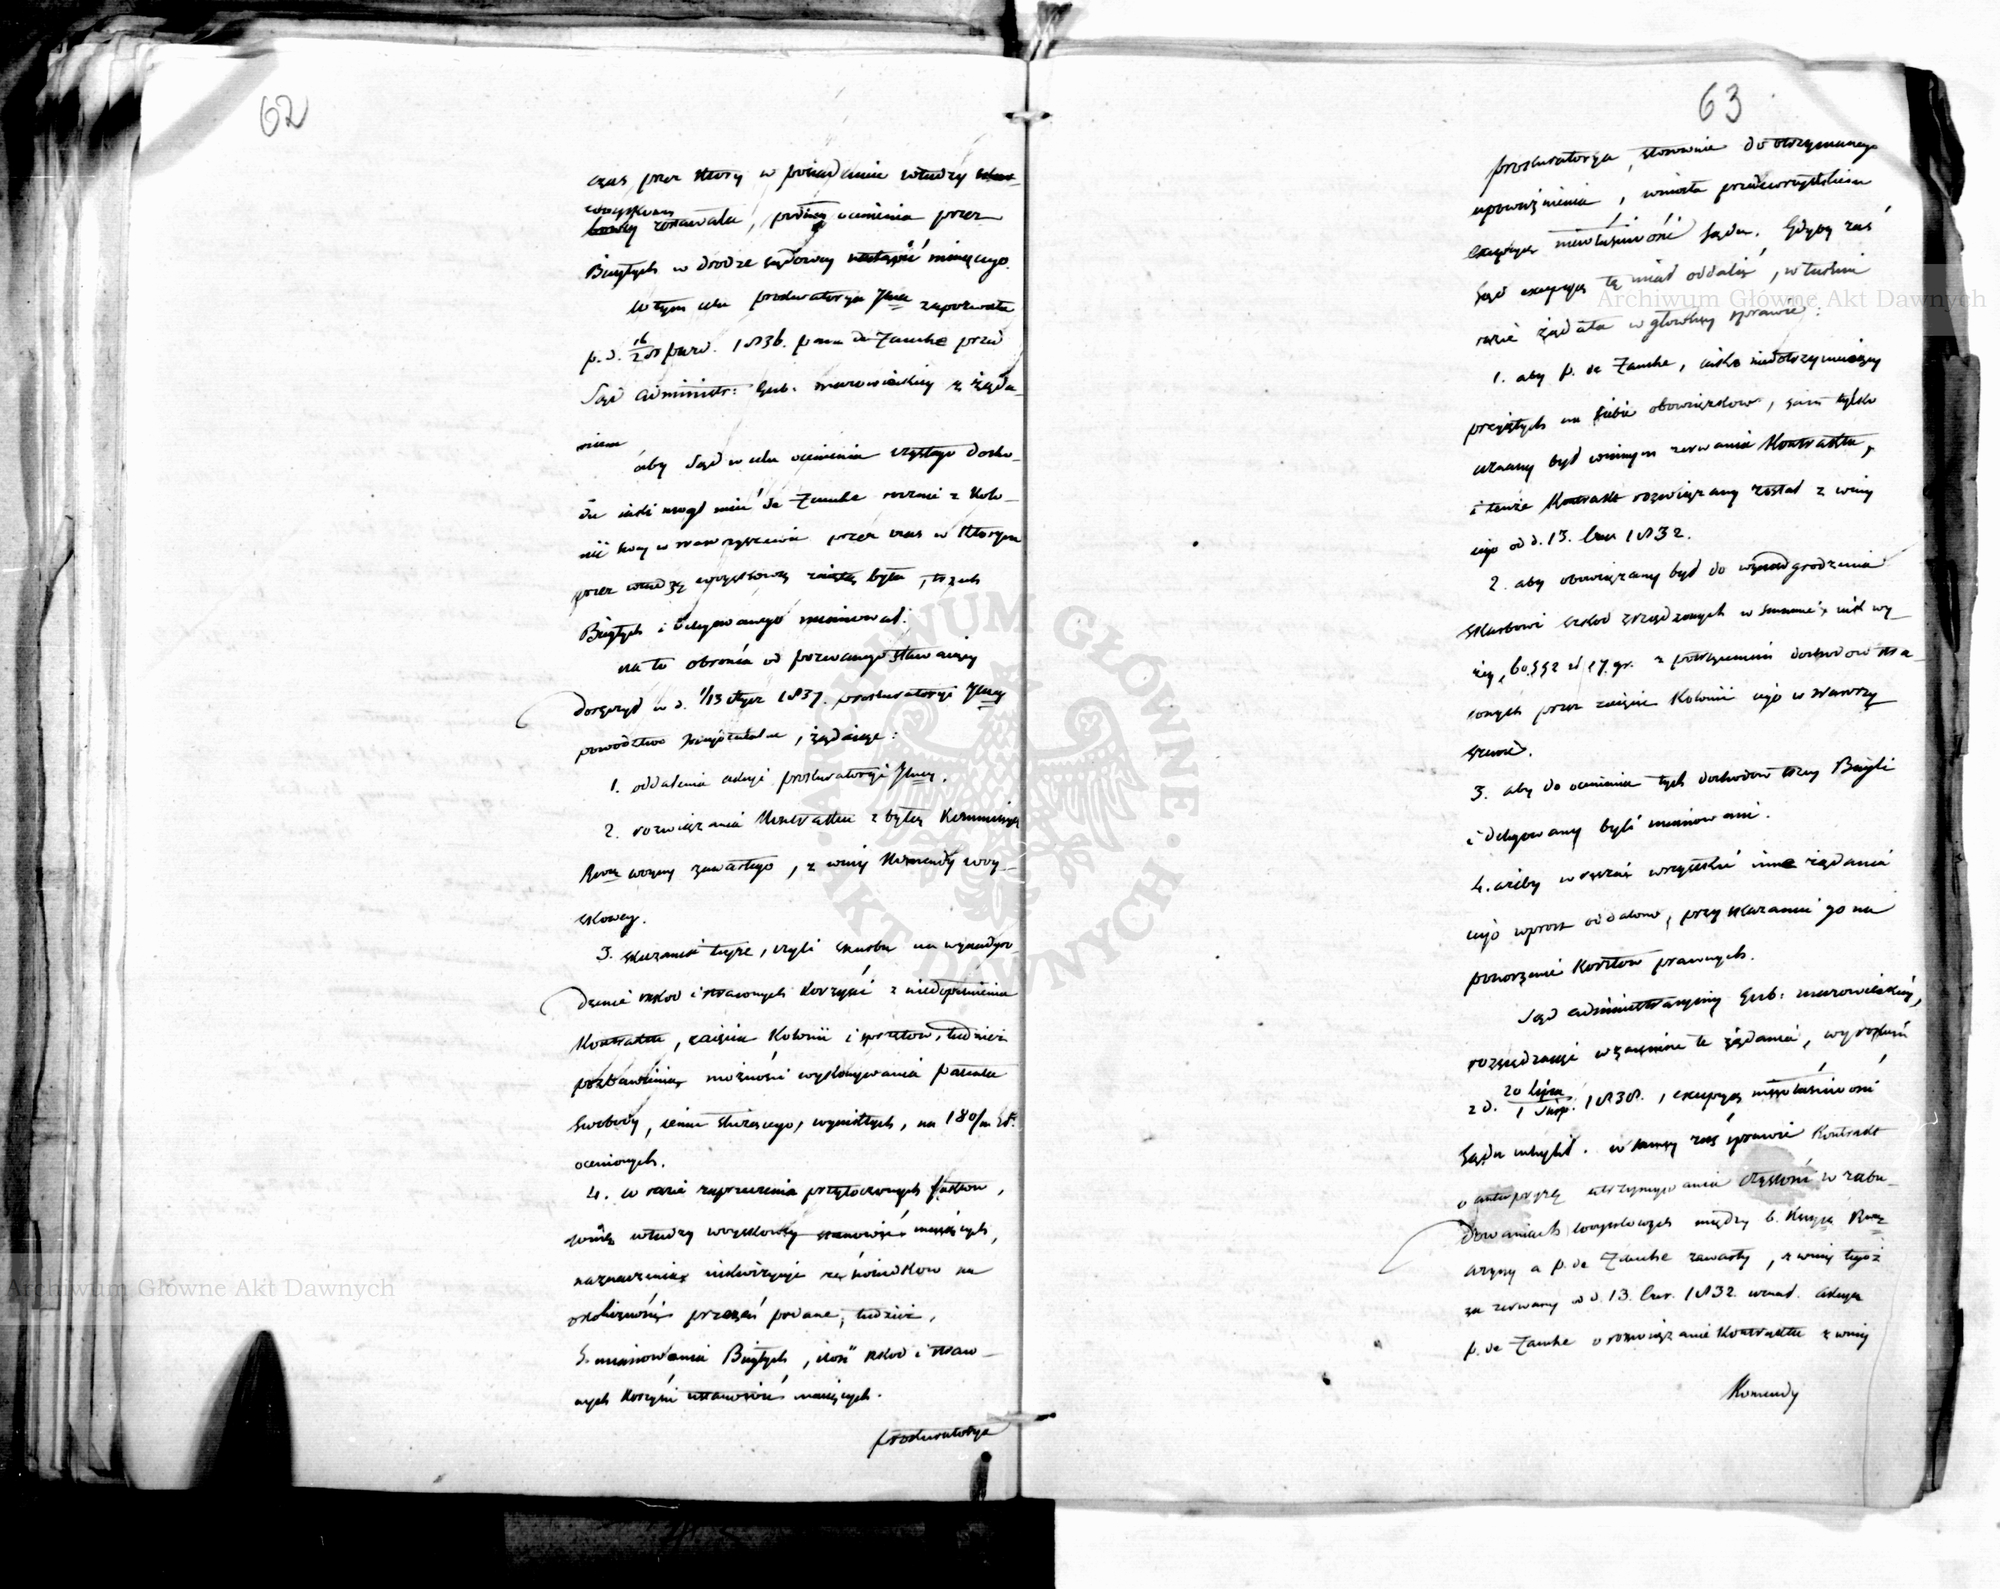 62
czas przez który w posiadaniu władzy
woyskowey zostawała, podług ocenienia przez
Biegłych w drodze sądowey nastąpić mającego.
W tym celu prokuratorya Jlna zapozwała
p. d. 16/28 paźd. 1836. pana de Zanche przed
Sąd administr: Gub: mazowieckiey z żąda-
niem
aby Sąd w celu ocenienia czystego docho-
du jaki mógł mieć de Zanche rocznie z Kolo-
nii swey w Wawrzyszewie przez czas w którym
przez władzę woyskową zajętą była, trzech
Biegłych i Delegowanego mianował.
na to obrońca od pozwanego stawający
doręczył w d. 1/13 stycz 1837. prokuratoryi Jlney
powództwo incydentalne, żądając:
1. oddalenia akcyi prokuratoryi Jlney.
2. rozwiązania Kontraktu z byłą Kommissyą
Rząd woyny zawartego, z winy Komendy woy-
skowey.
3. skazania teyże, czyli skarbu na wynadgro-
dzenie szkód i straconych korzyści z niedopełnienia
Kontraktu, zajęcia Kolonii i sprzętów, tudzież
pozbawienia możności wykonywania patentu
swobody, jemu służącego, wynikłych, na 180/m Zł.
ocenionych.
4. w razie zaprzeczenia przytoczonych faktów,
winę władzy woyskowey stanowić mających,
naznaczenia inkwizycyi ze świadków na
okoliczności przezeń podane; tudzież,
5. mianowania Biegłych, ilość szkód i straco-
nych korzyści ustanowić mających.
prokuratorya
63
prokuratorya, stosownie do otrzymanego
upoważnienia, wniosła przedewszystkiem
excepcyą niewłaściwości Sądu. Gdyby zaś
Sąd excepcyą tę miał oddalić, w takim
razie żądała w główney sprawie:
1. aby p. de Zanche, jako niedotrzymujący
przyjętych na siebie obowiązków, sam tylko
uznany był winnym zerwania Kontraktu,
i tenże Kontrakt rozwiązany został z winy
jego od d. 13. Czer 1832.
2. aby obowiązany był do wynadgrodzenia
skarbowi szkód zrządzonych w summie, jak wy-
żey, 60.552 zł 27. gr. z potrąceniem dochodów stra-
conych przez zajęcie Kolonii jego w Wawrzy
szewie.
3. aby do ocenienia tych dochodów trzey Biegli
i Delegowany byli mianowani.
4. ażeby wreszcie wszystkie inne żądania
jego wprost oddalono, przy skazaniu go na
ponoszenie kosztów prawnych.
Sąd administracyiny Gub: mazowieckiey,
rozsądzając wzajemne te żądania, wyrokiem
z d. 20 lipca/1 Sierp. 1838., excepcyą niewłaściwości
Sądu uchylił. w samey zaś sprawie Kontrakt
o antrepryzę utrzymywania czystości w zabu-
dowaniach woyskowych między b. Kmsyą Rząd
woyny a p. de Zanche zawarty, z winy tegoż
za zerwany od d. 13. Czer. 1832 uznał. akcyą
p. de Zanche o rozwiązanie Kontraktu z winy
Komendy
Archiwum Główne Akt Dawnych
Archiwum Główne Akt Dawnych
ARCHIWUM GŁÓWNE · AKT DAWNYCH ·